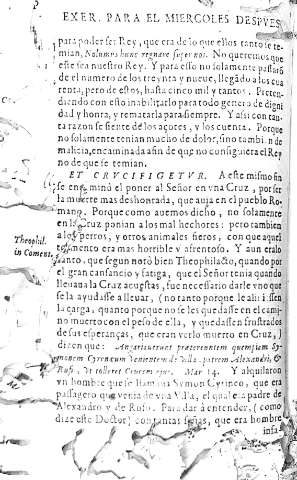 EXER. PARA EL MIERCOLES DESPVES
para poder ser Rey, que era de lo que ellos tanto se te-
mian, Nolumus hunc regnare super nos. No queremos que
este sea nuestro Rey. Y para esso no solamente passarõ
de el numero de los treynta y nueue, llegado a los cua
renta, pero de estos, hasta cinco mil y tantos. Preten-
diendo con esto inhabilitarlo para todo genero de digni
dad y honra, y rematarla para siempre. Y assi con tan
ta razon se siente de los açotes, y los cuenta. Porque
no solamente tenian mucho de dolor, sino tambi. n de
malicia, encaminada a fin de que no consiguiera el Rey
no de que se temian.
ET CRVCIFIGETVR. A este mismo fin
se encaminó el poner al Señor en vna Cruz, por ser
la muerte mas deshonrada, que auia en el pueblo Ro-
mano. Porque como auemos dicho, no solamente
en la Cruz ponian a los mal hechores: pero tambien
a los perros, y otros animales fieros, con que aquel
tormento era mas horrible y afrentoso. Y aun eralo
tanto, que segun notò bien Theophilacto, quando por
Theophil.
in Coment.
el gran cansancio y fatiga, que el Señor tenia quando
lleuaua la Cruz acuestas, fue necessario darle vno que
se la ayudasse a lleuar, (no tanto porque le aliuiassen
la carga, quanto porque no se les quedasse en el cami-
no muerto con el peso de ella, y quedassen frustrados
de sus esperanças, que eran verlo muerto en Cruz,)
dizen que: Angariauerunt prætereuntem quempiam Sy-
monem Cyreneum venientem de villa, patrem Alexandri, &
Rufi, vt tolleret Crucem eius. Mar 14. Y alquilaron
vn hombre que se llamaua Symon Cyrineo, que era
passagero que venia de vna Villa, el qual era padre de
Alexandro y de Rufo. Para dar à entender, (como
dize este Doctor) con tantas señas, que era hombre
infa-